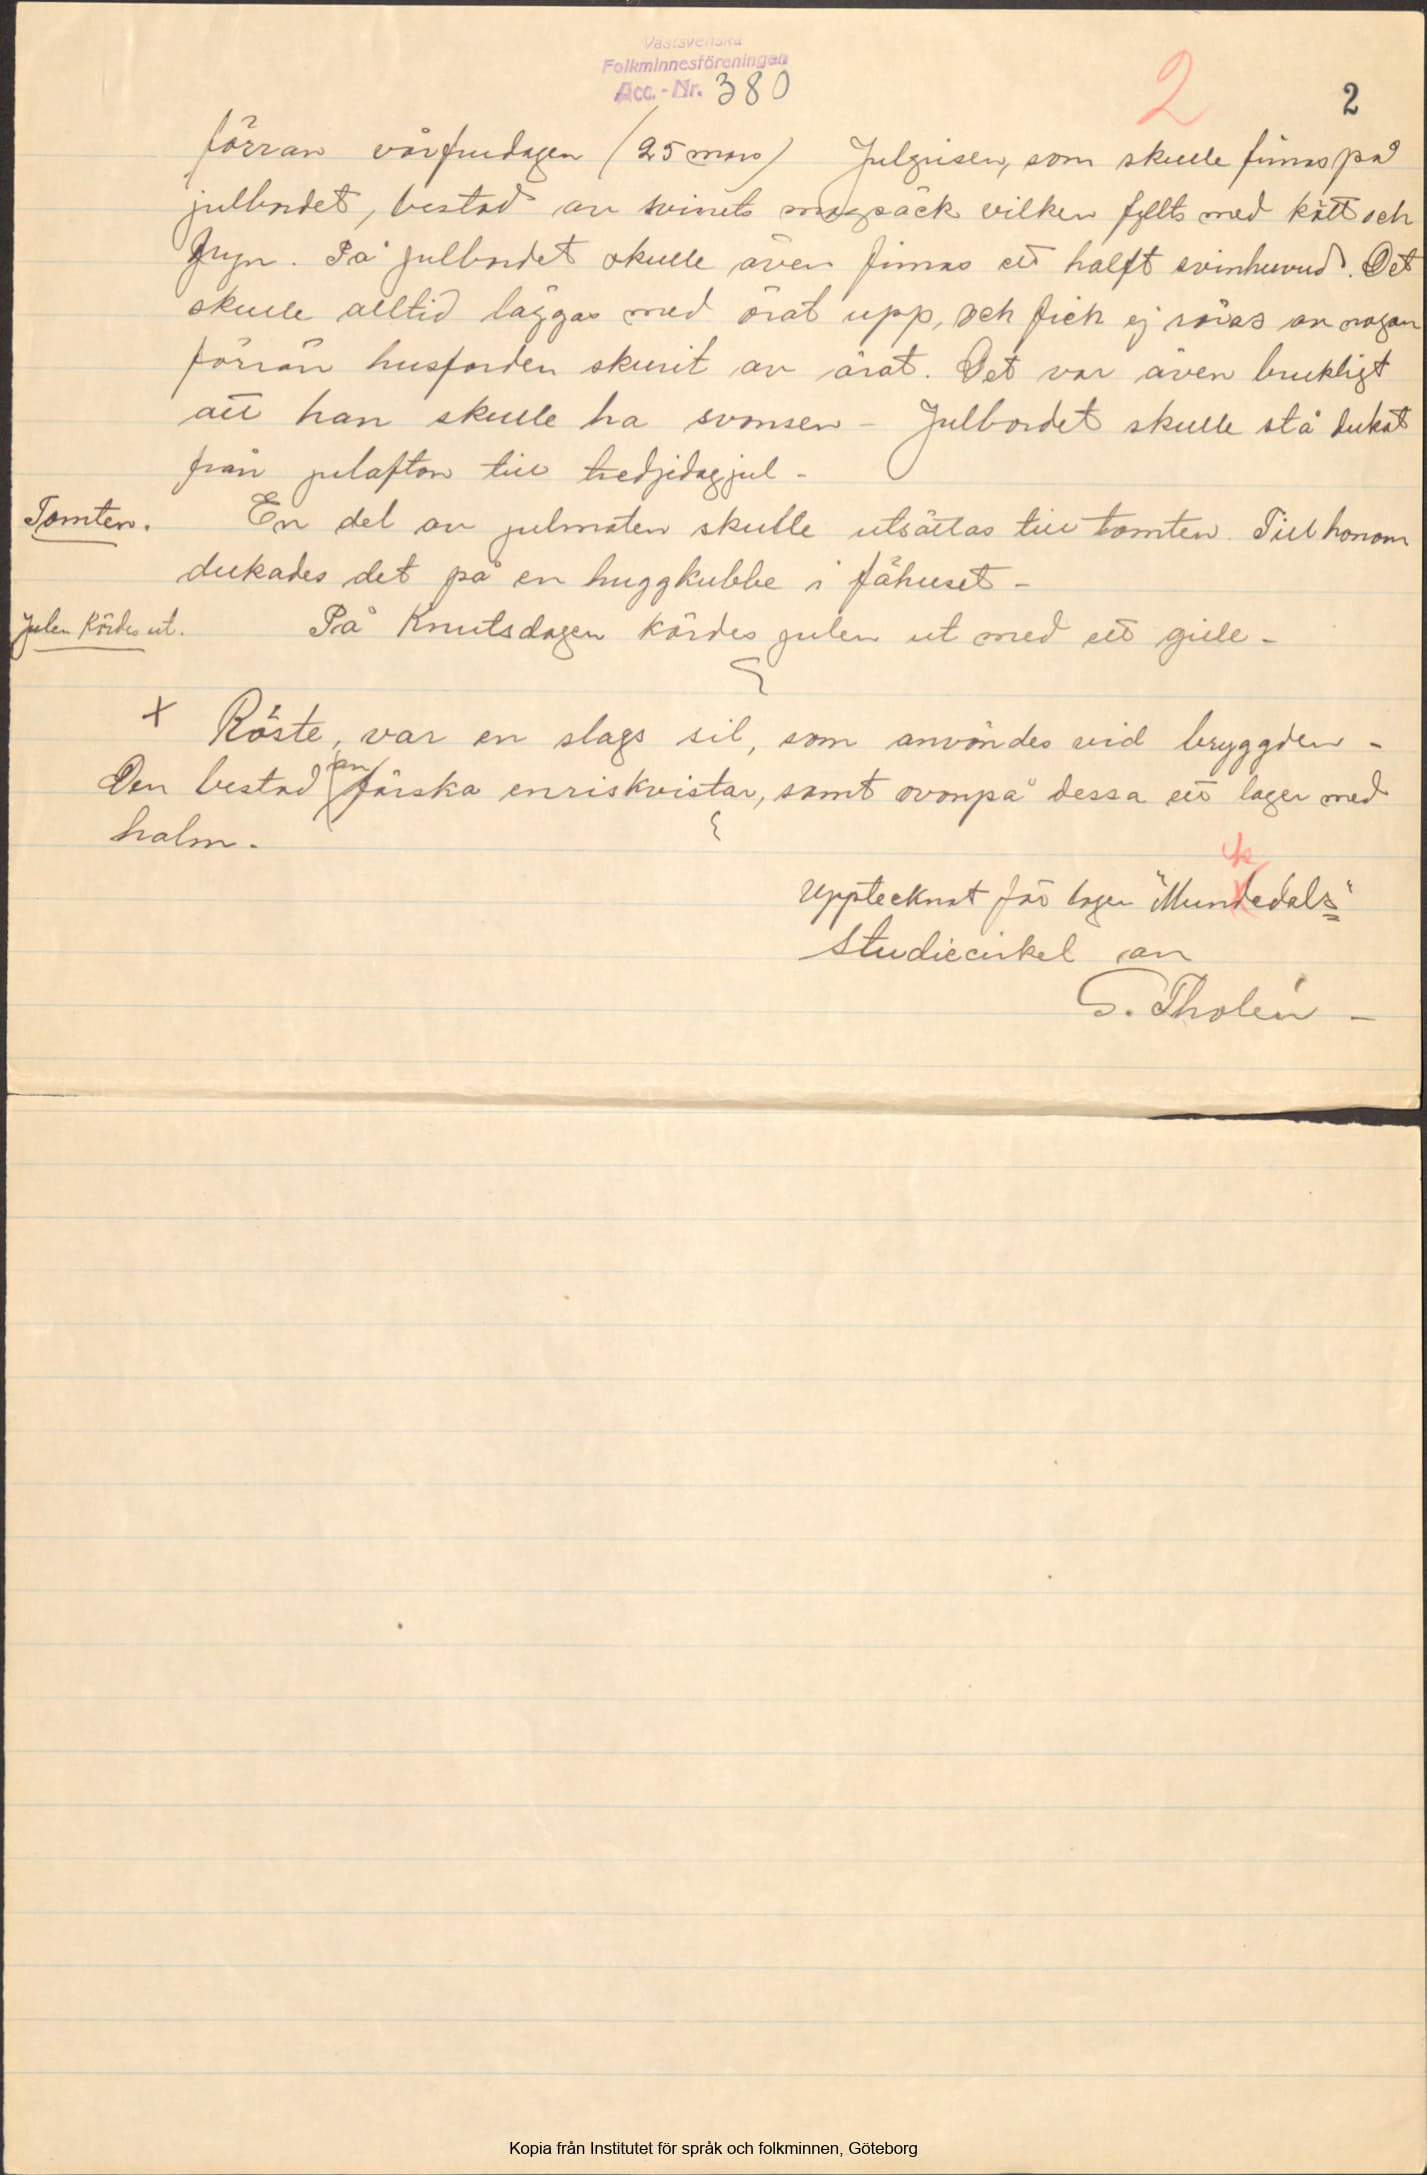 Västsvenska
Folkminnesföreningen
Acc.-Nr. 380
2
2
förrän vårfrudagen (25 mars) Julgrisen, som skulle finnas på
julbordet, bestod av svinets magsäck vilken fyllts med kött och
gryn. På julbordet skulle även finnas ett halft svinhuvud. Det
skulle alltid läggas med örat upp, och fick ej röras av någon
förrän husfarden skurit av örat. Det var även brukligt
att han skulle ha svansen – Julbordet skulle stå dukat
från julafton till tredjidagjul –
Tomten.
En del av julmaten skulle utsättas till tomten. Till honom
dukades det på en huggkubbe i fähuset –
Julen kördes ut.
På Knutsdagen kördes julen ut med ett gille –
x Röste, var en slags sil, som användes vid bryggden –
Den bestod av färska enriskvistar, samt ovanpå dessa ett lager med
halm.
Upptecknat för logen "Munkedals"
Studiecirkel av
G. Tholén –
Kopia från Institutet för språk och folkminnen, Göteborg